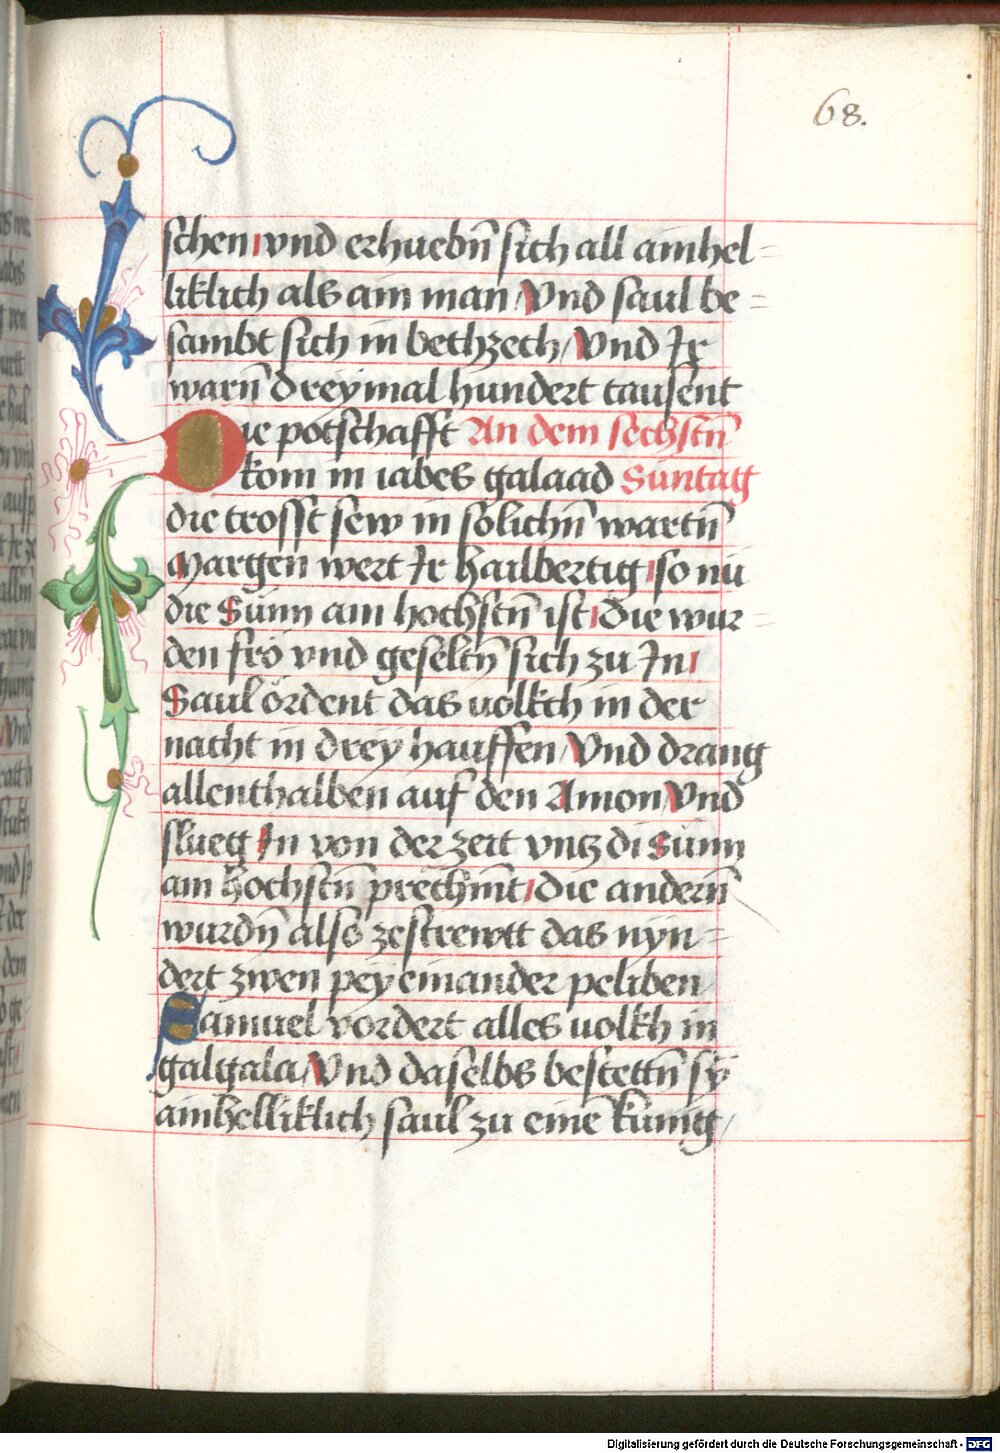 68.
schen vnd erhuebn̄ sich all ainhel=
liklich als ain man Vnd saul be=
sambt sich in bethzech / Vnd Ir
warn̄ dreymal hundert tausent
Die potschafft An dem sechstn̄
kom in iabes galaad Suntag
die trosst sew in solichn̄ wartn̄
Margen wert Ir hailbertig so nu
die Sunn am hochstn̄ ist Die wur=
den frö vnd geseltn̄ sich zu In
Saul ördent das uolkch in der
nacht in drey hauffen / Vnd drang
allenthalben auf den Amon Vnd
sluegg In von der zeit vntz di Sunn
am hochstn̄ prechn̄t die andern̄
wurdn̄ also zestrewtt das nyn=
dert zwen pey einander peliben
Samuel vordert alles uolkh in
galgala / Vnd daselbs bestettn̄ sy
ainhelliklich saul zu eine kunig /
Digitalisierung gefördert durch die Deutsche Forschungsgemeinschaft - DFG